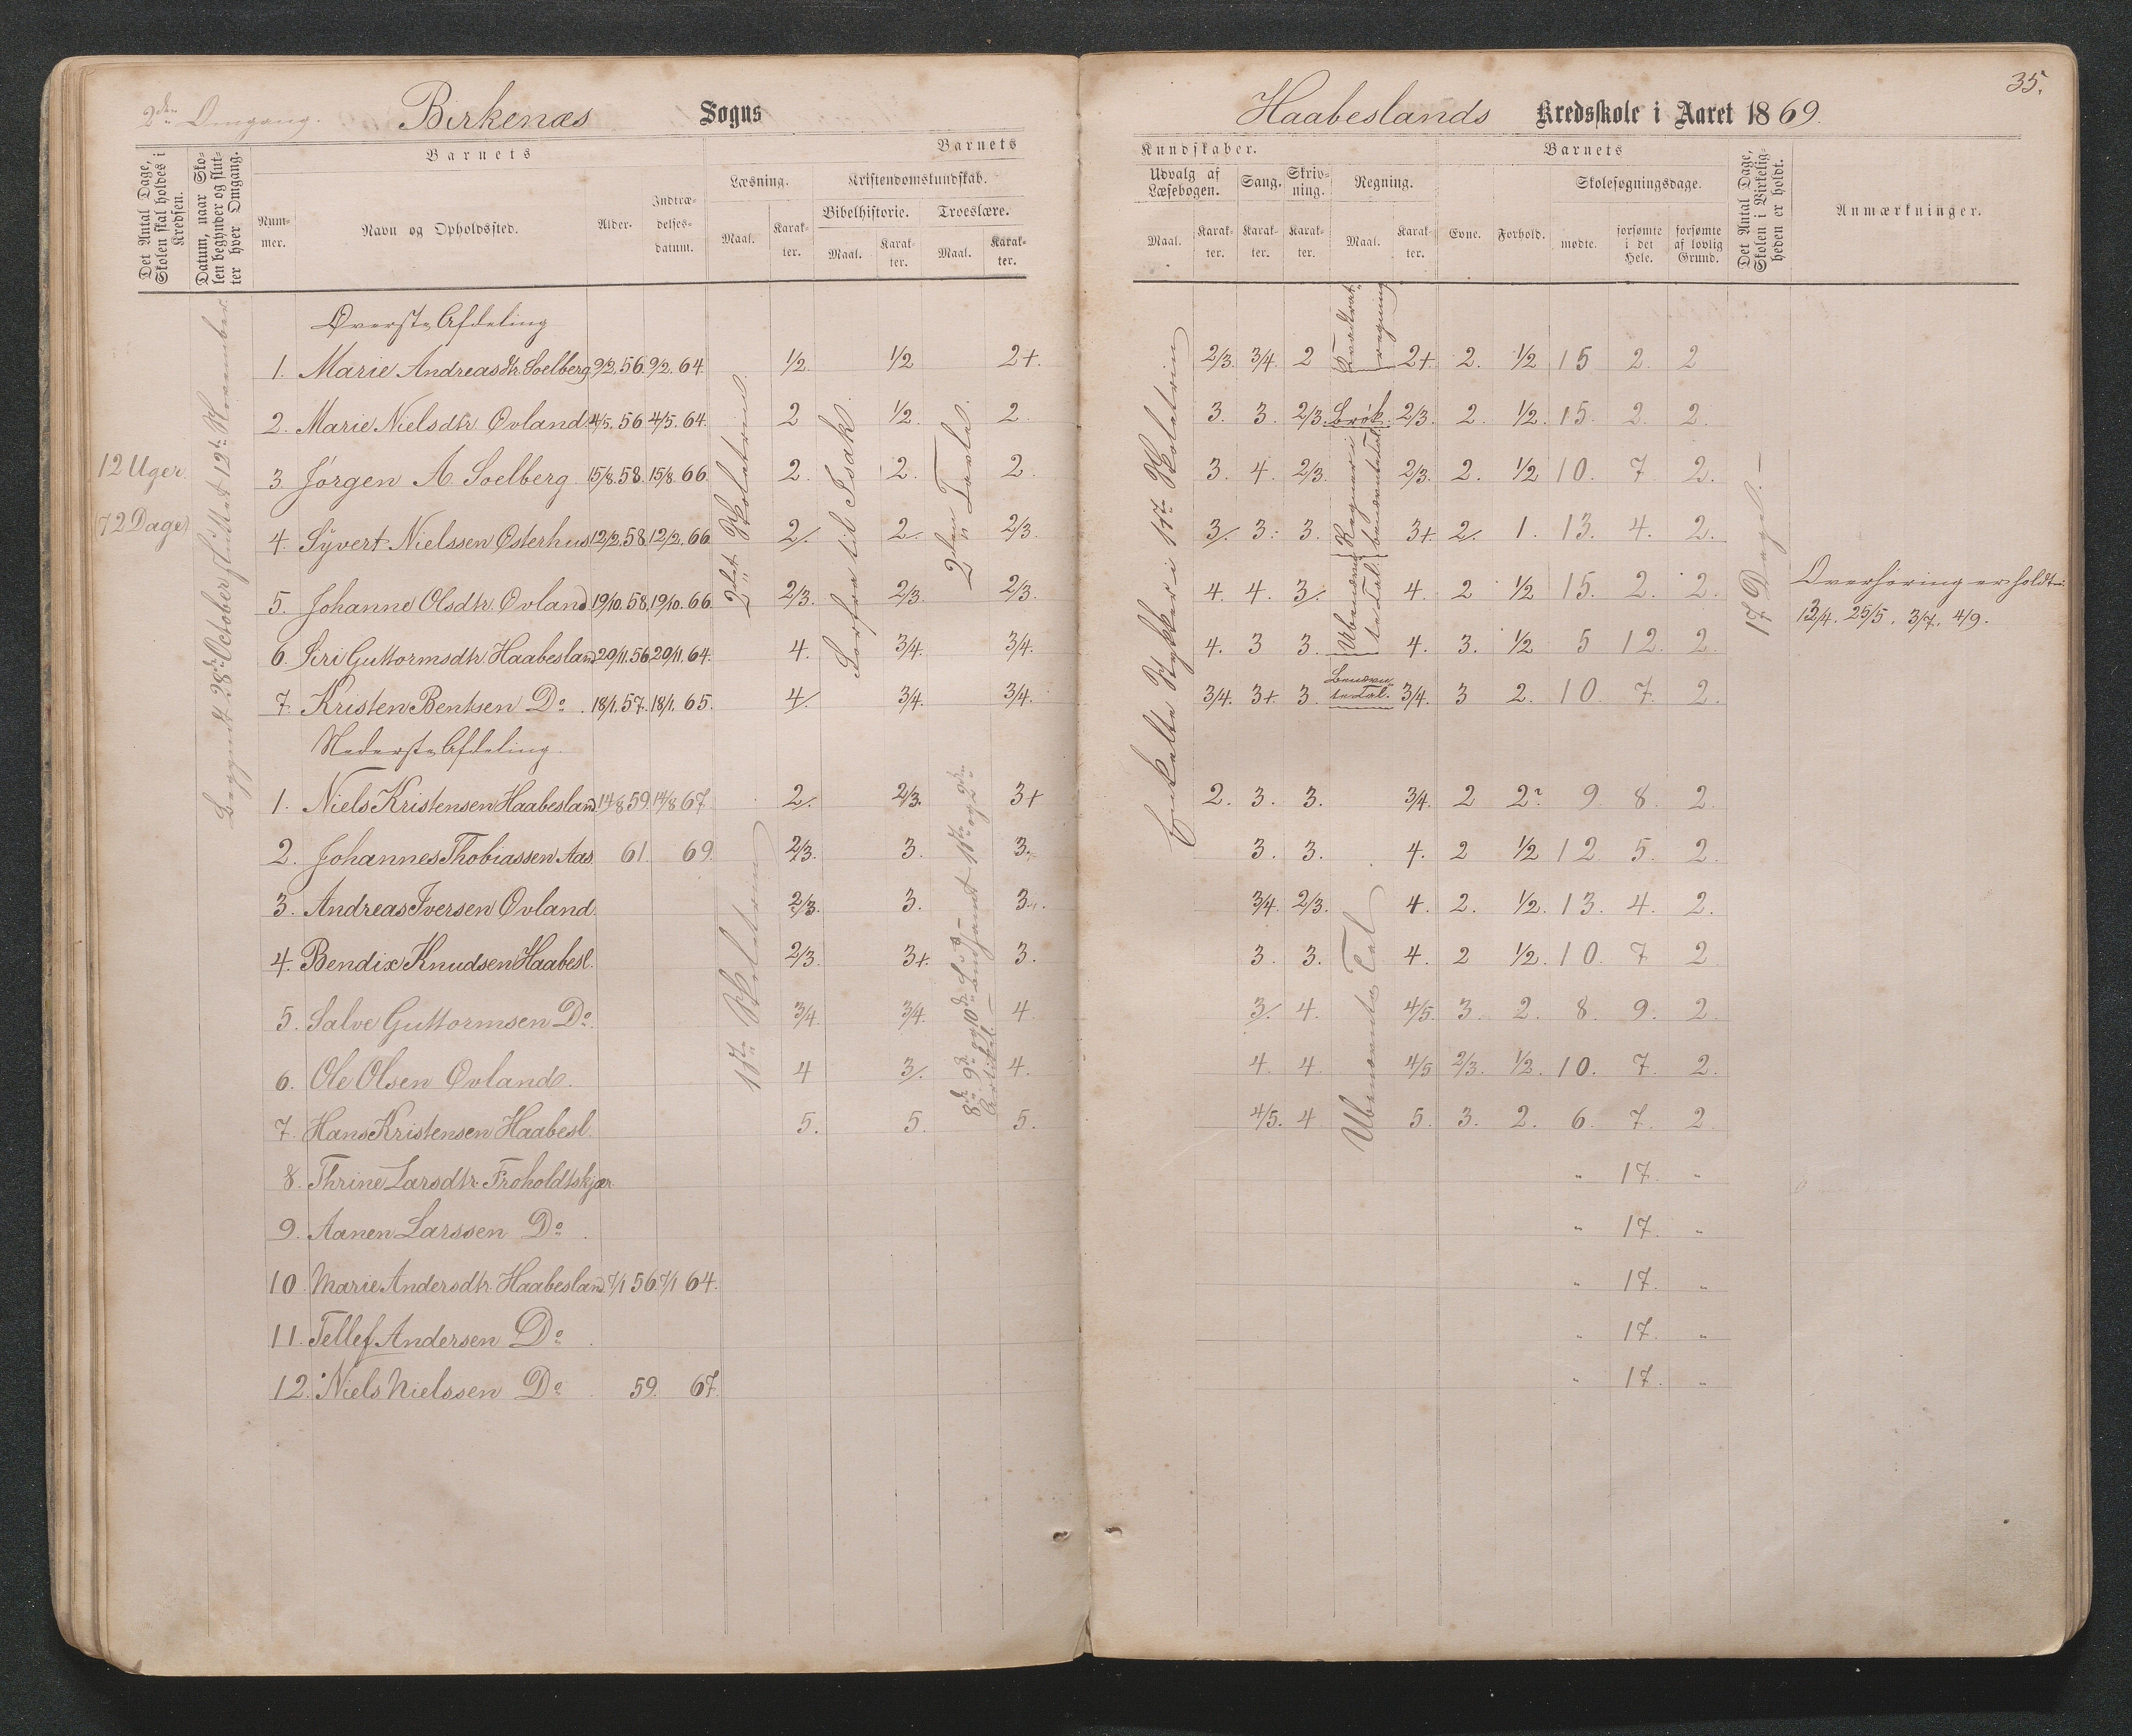 2den Omgang. Birkenæs Sogns
Haabeslands Kredsskole i Aaret 1869. 35.
Det Antal Dage, Skolen skal holdes i Kredsen.
Datum, naar Skolen begynder og slutter hver Omgang.
Barnets
Nummer.
Navn og Opholdssted.
Alder.
Indtrædelsesdatum.
Barnets
Læsning.
Maal.
Karakter.
Kristendomskundskab.
Bibelhistorie.
Maal.
Karakter.
Troeslære.
Maal.
Karakter.
Kundskaber.
Udvalg af Læsebogen.
Maal.
Karakter.
Sang.
Karakter.
Skrivning.
Karakter.
Regning.
Maal.
Karakter.
Barnets
Evne.
Forhold.
Skolesøgningsdage.
mødte.
forsømte i det Hele.
forsømte af lovlig Grund.
Det Antal Dage, Skolen i Virkeligheden er holdt.
Anmærkninger.
12 Uger.
(72 Dage)
Begyndt 28de October sluttet 12te November.
2det Skoletrin.
Forfra til Isak
2den Tavle.
Enkelte Stykker i 1ste Skoletrin
17 Dage.
Øverste Afdeling
1. Marie Andreasdtr. Soelberg 9/2. 56. 9/2. 64. 1/2. 1/2 2+. 2/3. 3/4. 2 2+. 2. 1/2 15 2. 2
2. Marie Nielsdtr Ovland 4/5. 56 4/5. 64. 2 1/2. 2. 3. 3. 2/3. Brøk. 2/3. 2. 1/2. 15. 2. 2.
3 Jørgen A. Soelberg. 15/8. 58. 15/8. 66. 2. 2. 2. 3. 4. 2/3. 2/3. 2. 1/2 10. 7 2.
4. Syvert Nielssen Østerhus 12/2. 58. 12/2. 66. 2/. 2. 2/3. 3/. 3. 3. 3+. 2/. 1. 13. 4. 2.
5. Johanne Olsdtr. Ovland 19/10. 58. 19/10. 66. 2/3. 2/3. 2/3. 4. 4. 3/. 4. 2 1/2 15. 2. 2.
Overhøring er holdt:
13/4. 25/5. 3/7. 4/9.
6. Siri Guttormsdtr. Haabesland 29/11. 56. 29/11. 64. 4. 3/4. 3/4. 4. 3 3. 4. 3. 1/2 5 12. 2.
7. Kristen Bentsen Do. 18/1. 57. 18/1. 65. 4/. 3/4. 3/4. 3/4. 3+. 3. 3/4. 3 2. 10. 7. 2.
Nederste Afdeling.
1. Niels Kristensen Haabesland. 14/8 59. 14/8 67 2/. 2/3. 3+ 2. 3. 3. 3/4. 2 2. 9. 8. 2.
2. Johannes Thobiassen Aas. 61. 69. 2/3. 3. 3. 3. 3. 4. 2 1/2 12 5. 2.
3. Andreas Iversen Ovland. 2/3. 3. 3. 3/4. 2/3. 4. 2. 1/2. 13. 4. 2.
4. Bendix Knudsen Haabesl. 2/3. 3+. 3. 3. 3. 4. 2 1/2. 10. 7 2.
5. Salve Guttormsen Do. 3/4. 3/4. 4 3/. 4. 4/5. 3. 2. 8. 9. 2.
6. Ole Olsen Ovland. 4 3/. 4. 4. 4 4/5 2/3. 1/2. 10. 7. 2.
7. Hans Kristensen Haabesl. 5. 5. 5. 4/5. 4 5. 3. 2. 6. 7. 2.
8. Thrine Larsdtr. Froholdtskjær " 17. "
9. Aanen Larssen Do. " 17. "
10. Marie Andersdtr. Haabesland. 7/1 56. 7/1 64. " 17. "
11. Tellef Andersen Do " 17. "
12. Niels Nielssen Do 59. 67. " 17. "
1ste Skoletrin
8de 9de og 10de Bud samt 1ste og 2den Artikel.
Ubenævnte Tal